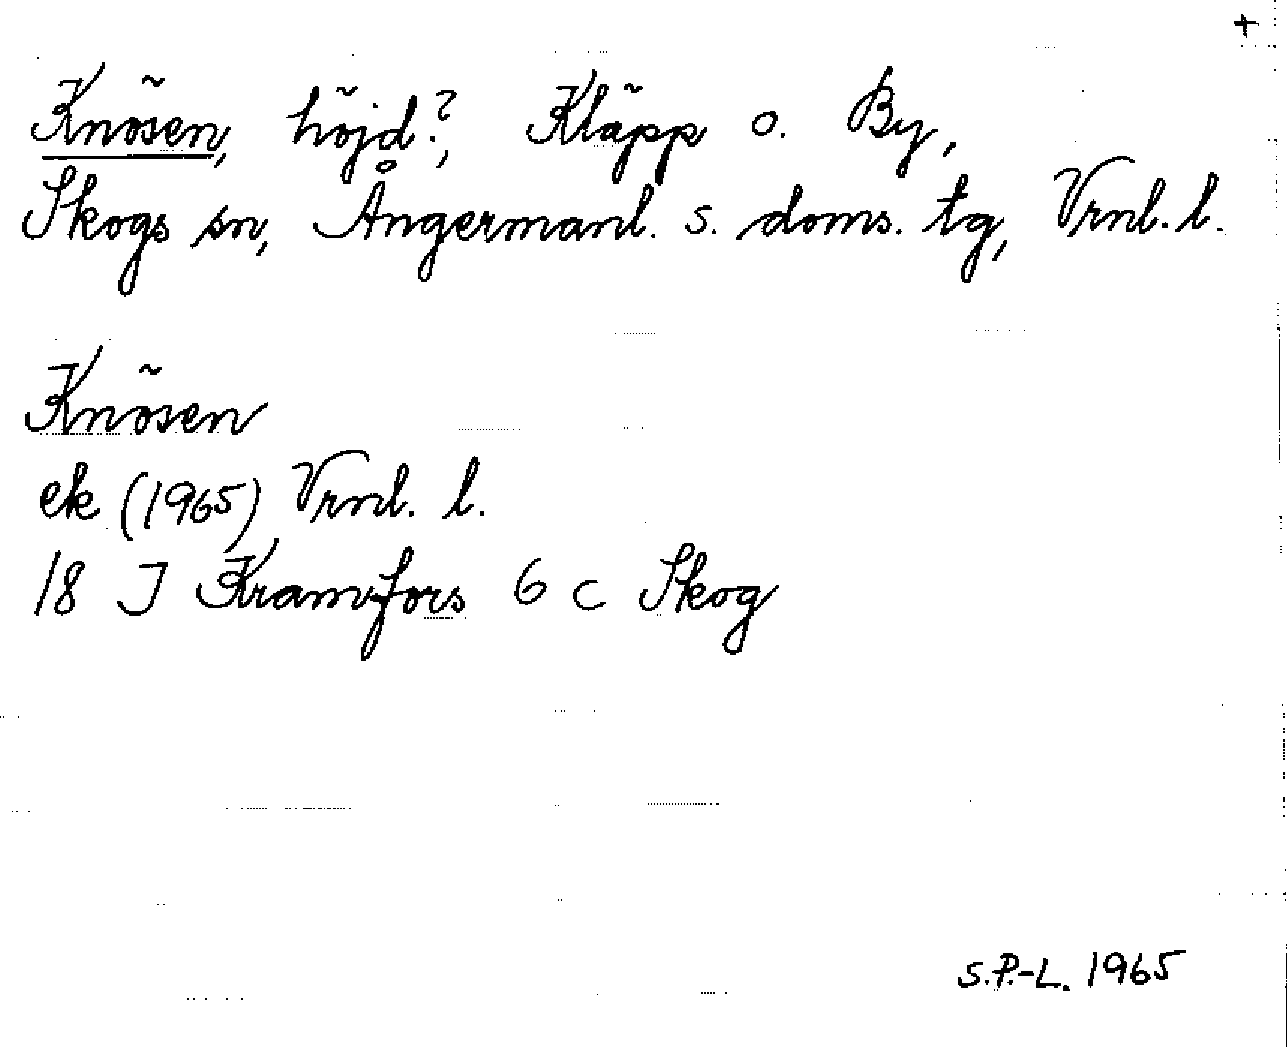 +
Knösen, höjd?, Kläpp o. By,
Skogs sn, Ångermanl. s. doms. tg, Vrnl. l.
Knösen
ek (1965) Vrnl. l.
18 J Kramfors 6 c Skog
S.P.-L. 1965